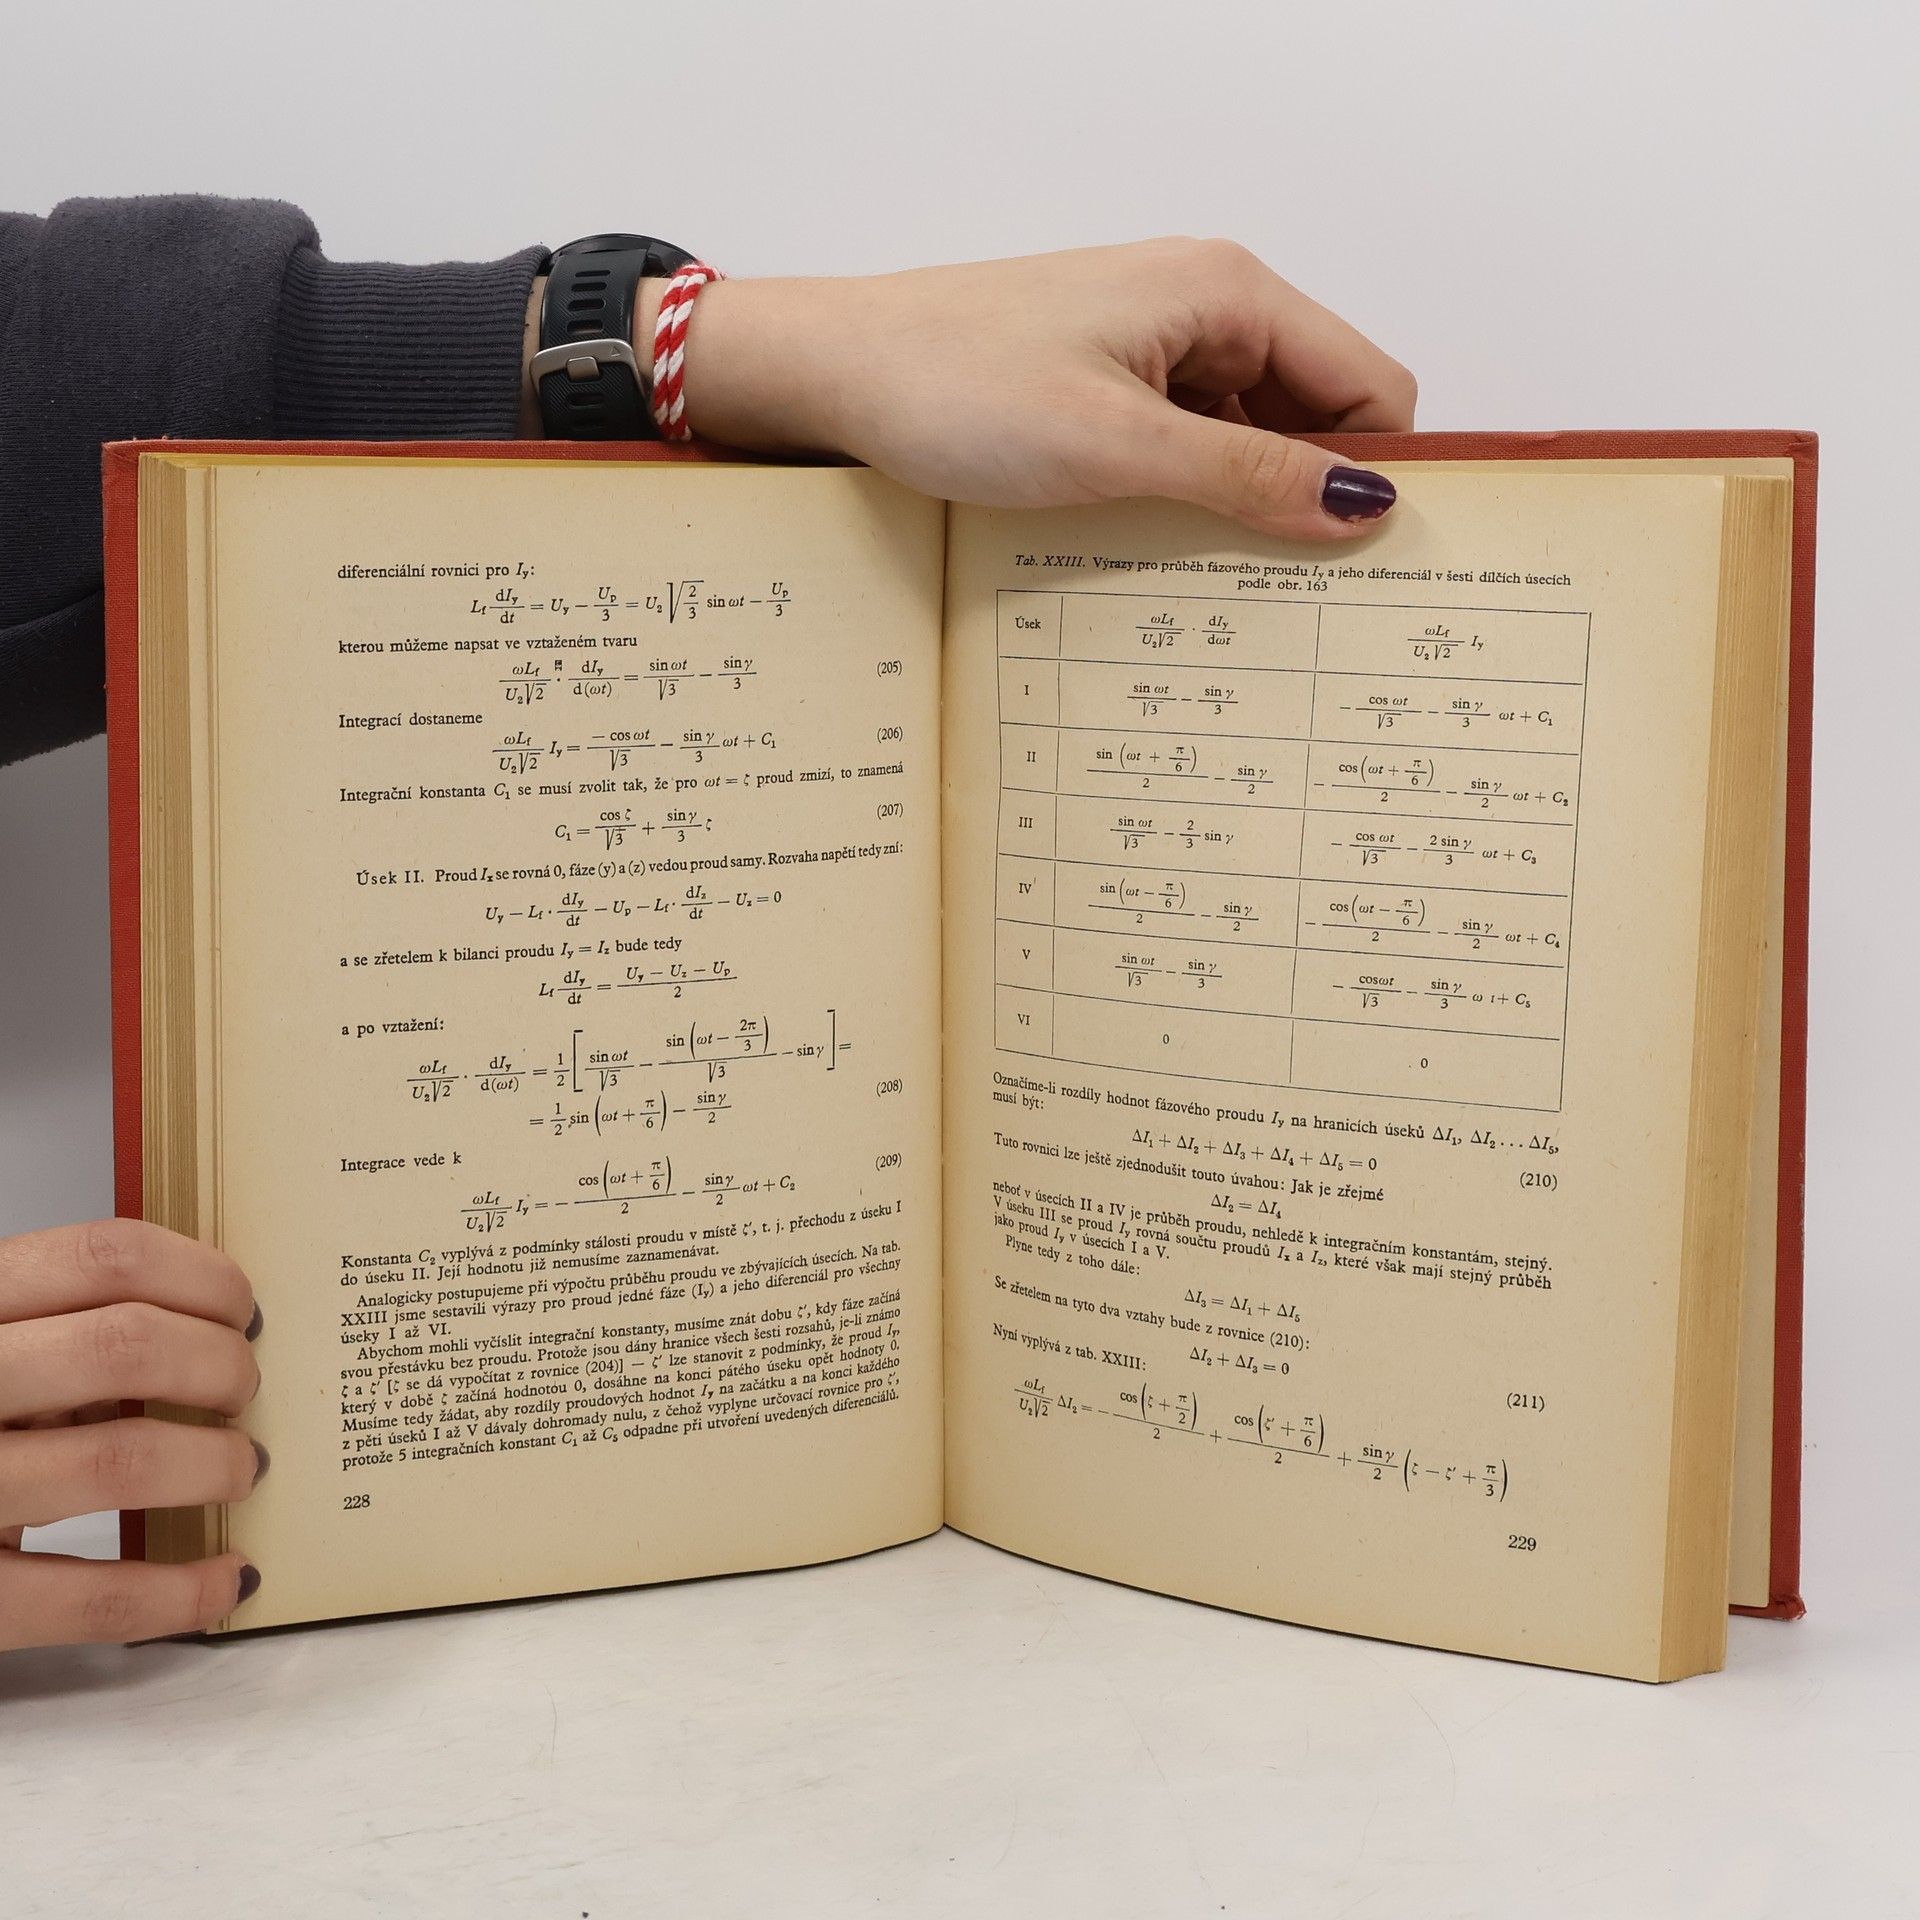 diferenciální rovnici pro I_y:
L_f dI_y/dt = U_y − U_p/3 = U_2 √(2/3) sin ωt − U_p/3
kterou můžeme napsat ve vztaženém tvaru
ωL_f/(U_2√2) · dI_y/d(ωt) = sin ωt/√3 − sin γ/3 (205)
Integrací dostaneme
ωL_f/(U_2√2) I_y = − cos ωt/√3 − sin γ/3 ωt + C_1 (206)
Integrační konstanta C_1 se musí zvolit tak, že pro ωt = ζ proud zmizí, to znamená
C_1 = cos ζ/√3 + sin γ/3 ζ (207)
Úsek II. Proud I_x se rovná 0, fáze (y) a (z) vedou proud samy. Rozvaha napětí tedy zní:
U_y − L_f · dI_y/dt − U_p − L_f · dI_z/dt − U_z = 0
a se zřetelem k bilanci proudu I_y = I_z bude tedy
L_f dI_y/dt = (U_y − U_z − U_p)/2
a po vztažení:
ωL_f/(U_2√2) · dI_y/d(ωt) = 1/2 [sin ωt/√3 − sin (ωt − 2π/3)/√3 − sin γ] =
= 1/2 sin (ωt + π/6) − sin γ/2 (208)
Integrace vede k
ωL_f/(U_2√2) I_y = − cos (ωt + π/6)/2 − sin γ/2 ωt + C_2 (209)
Konstanta C_2 vyplývá z podmínky stálosti proudu v místě ζ′, t. j. přechodu z úseku I
do úseku II. Její hodnotu již nemusíme zaznamenávat.
Analogicky postupujeme při výpočtu průběhu proudu ve zbývajících úsecích. Na tab.
XXIII jsme sestavili výrazy pro proud jedné fáze (I_y) a jeho diferenciál pro všechny
úseky I až VI.
Abychom mohli vyčíslit integrační konstanty, musíme znát dobu ζ′, kdy fáze začíná
svou přestávku bez proudu. Protože jsou dány hranice všech šesti rozsahů, je-li známo
ζ a ζ′ [ζ se dá vypočítat z rovnice (204)] — ζ′ lze stanovit z podmínky, že proud I_y,
který v době ζ začíná hodnotou 0, dosáhne na konci pátého úseku opět hodnoty 0.
Musíme tedy žádat, aby rozdíly proudových hodnot I_y na začátku a na konci každého
z pěti úseků I až V dávaly dohromady nulu, z čehož vyplyne určovací rovnice pro ζ′,
protože 5 integračních konstant C_1 až C_5 odpadne při utvoření uvedených diferenciálů.
228
Tab. XXIII. Výrazy pro průběh fázového proudu I_y a jeho diferenciál v šesti dílčích úsecích
podle obr. 163
Úsek | ωL_f/(U_2√2) · dI_y/dωt | ωL_f/(U_2√2) I_y
I | sin ωt/√3 − sin γ/3 | − cos ωt/√3 − sin γ/3 ωt + C_1
II | sin (ωt + π/6)/2 − sin γ/2 | − cos (ωt + π/6)/2 − sin γ/2 ωt + C_2
III | sin ωt/√3 − 2/3 sin γ | − cos ωt/√3 − 2 sin γ/3 ωt + C_3
IV | sin (ωt − π/6)/2 − sin γ/2 | − cos (ωt − π/6)/2 − sin γ/2 ωt + C_4
V | sin ωt/√3 − sin γ/3 | − cos ωt/√3 − sin γ/3 ω t + C_5
VI | 0 | 0
Označíme-li rozdíly hodnot fázového proudu I_y na hranicích úseků ΔI_1, ΔI_2 . . . ΔI_5,
musí být:
ΔI_1 + ΔI_2 + ΔI_3 + ΔI_4 + ΔI_5 = 0 (210)
Tuto rovnici lze ještě zjednodušit touto úvahou: Jak je zřejmé
ΔI_2 = ΔI_4
neboť v úsecích II a IV je průběh proudu, nehledě k integračním konstantám, stejný.
V úseku III se proud I_y rovná součtu proudů I_x a I_z, které však mají stejný průběh
jako proud I_y v úsecích I a V.
Plyne tedy z toho dále:
ΔI_3 = ΔI_1 + ΔI_5
Se zřetelem na tyto dva vztahy bude z rovnice (210):
ΔI_2 + ΔI_3 = 0 (211)
Nyní vyplývá z tab. XXIII:
ωL_f/(U_2√2) ΔI_2 = − cos (ζ + π/2)/2 + cos (ζ′ + π/6)/2 + sin γ/2 (ζ − ζ′ + π/3)
229